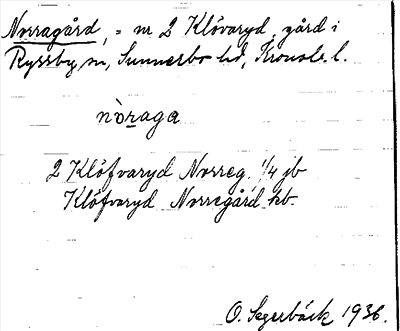 Norragård, = nr 2 Klövaryd, gård i
Ryssby sn, Sunnerbo hd, Kronob. l.
nòraga
2 Klöfvaryd Norreg. 1/4 jb
Klöfvaryd Norregård hb.
O. Segerbäck 1936.